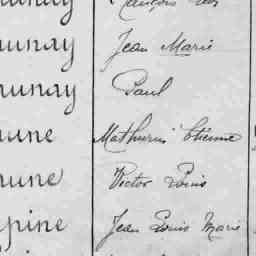 unay Jean Marie
unay Paul
une Mathurin Etienne
une Victor Louis
pine Jean Louis Marie